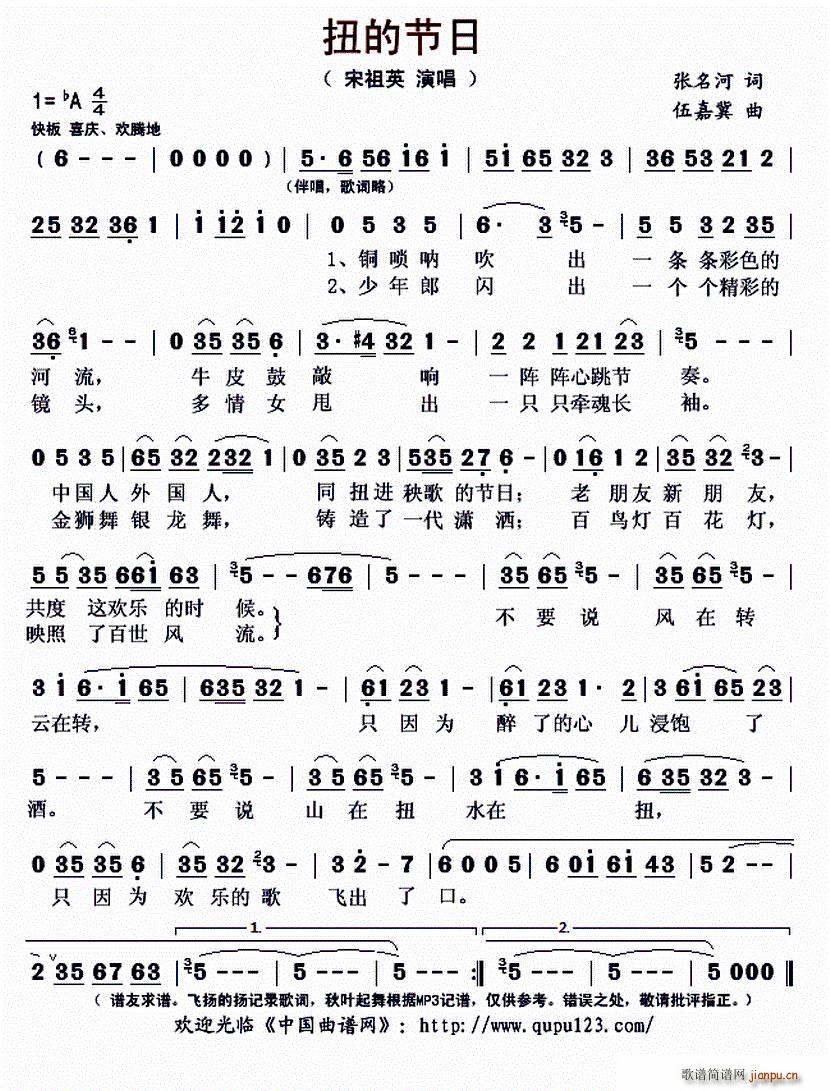 扭的节日
（ 宋祖英 演唱 ）
张名河 词
1= ♭A 4/4
伍嘉冀 曲
快板 喜庆、欢腾地
( 6 - - - | 0 0 0 0 ) | 5· 6 56 i6 i | 5i 65 32 3 | 36 53 21 2 |
（伴唱，歌词略）
25 32 36 1 | i i2 i 0 | 0 5 3 5 | 6· 3 5 - | 5 5 3 2 35 |
1、铜 唢 呐 吹 出 一 条 条彩色的
2、少 年 郎 闪 出 一 个 个精彩的
36 1 - - | 0 35 35 6 | 3· #4 32 1 - | 2 2 1 21 23 | 5 - - - |
河 流， 牛 皮 鼓 敲 响 一 阵 阵心跳节 奏。
镜 头， 多 情 女 甩 出 一 只 只牵魂长 袖。
0 5 3 5 | 65 32 232 1 | 0 35 2 3 | 535 27 6 - | 0 16 1 2 | 35 32 3 - |
中国人 外 国 人， 同 扭进 秧歌 的节日； 老 朋友 新 朋 友，
金狮舞 银 龙 舞， 铸 造了 一代 潇 洒； 百 鸟灯 百 花 灯，
5 5 35 66i 63 | 5 - - 676 | 5 - - - | 35 65 5 - | 35 65 5 - |
共度 这欢乐 的时 候。 不 要 说 风 在 转
映照 了百世 风 流。
3 i 6· i 65 | 635 32 1 - | 61 23 2 - | 61 23 1· 2 | 3 6i 65 23 |
云在转， 只 因 为 醉 了的心 儿 浸饱 了
5 - - - | 3 5 65 5 - | 3 5 65 5 - | 3 i 6· i 65 | 6 35 32 3 - |
酒。 不 要 说 山 在 扭 水在 扭，
0 35 35 6 | 35 32 3 - | 3 2 - 7 | 6 0 0 5 | 6 0i 6i 43 | 5 2 - - |
只 因 为 欢 乐的 歌 飞出 了 口。
1. 2.
2 35 67 63 | 5 - - - | 5 - - - :‖ 5 - - - | 5 - - - | 5 0 0 0 ‖
（ 谱友求谱。飞扬的扬记录歌词，秋叶起舞根据MP3记谱，仅供参考。错误之处，敬请批评指正。）
欢迎光临《中国曲谱网》：http://www.qupu123.com/
歌谱简谱网 jianpu.cn